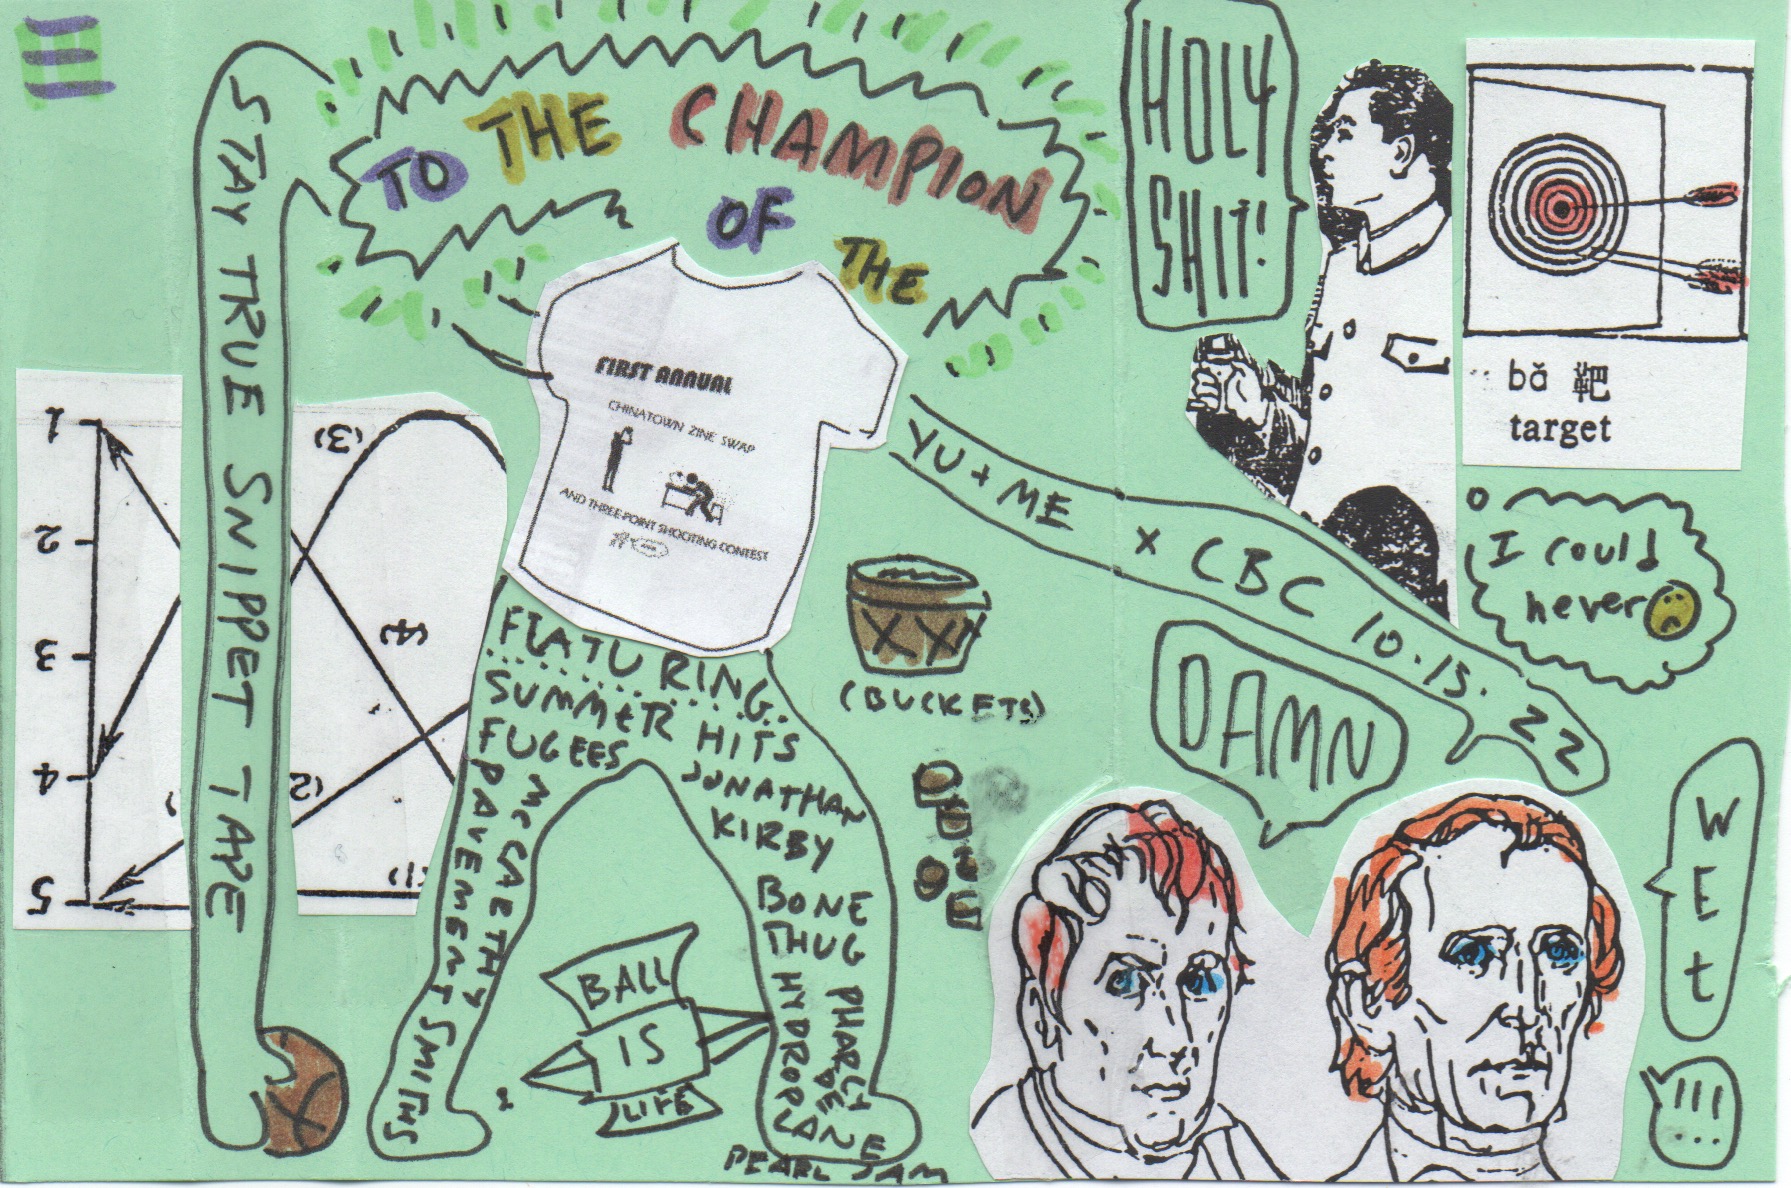 TO THE CHAMPION
OF THE
FIRST ANNUAL
CHINATOWN ZINE SWAP
AND THREE-POINT SHOOTING CONTEST
STAY TRUE SNIPPET TAPE
1
2
3
4
5
(3)
(4)
(2)
(1)
FEATURING
SUMMER HITS
FUGEES
JONATHAN
KIRBY
MCCARTHY
PAVEMENT SMITHS
BONE
THUG
PHARCYDE
HYDROPLANE
PEARL JAM
BALL
IS
LIFE
(BUCKETS)
YU + ME x CBC 10.15.22
HOLY
SHIT!
bǎ 靶
target
I could
never
DAMN
WEt
!!!